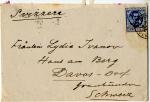 Svizzera
Fräulein Lydia Ivanow
Haus am Berg
Davos-Dorf
Graubünden
Schweiz